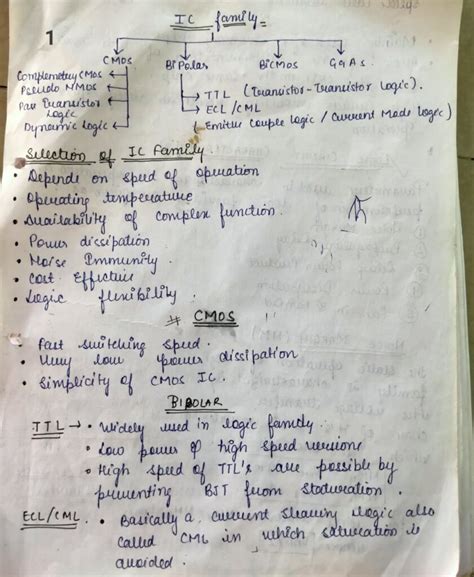 1
IC family =
CMOS BiPolar BiCMOS GaAs.
Complemetry CMOS
Pseudo NMOS
Pass Transistor Logic
Dynamic Logic
→ TTL (Transistor-Transistor Logic).
→ ECL/CML
(Emitter Couple logic / Current Mode logic)
Selection of IC Family
• Depends on speed of operation
• Operating temperature
• Availability of complex function.
• Power dissipation
• Noise Immunity.
• Cost Effective
• Logic flexibility.
# CMOS
Fast switching speed.
• Very low power dissipation
• Simplicity of CMOS IC.
BIPOLAR
TTL → • Widely used in logic family.
• Low power & high speed versions
• High speed of TTL's are possible by
preventing BJT from saturation.
ECL/CML. • Basically a current steering logic also
called CML in which saturation is
avoided.